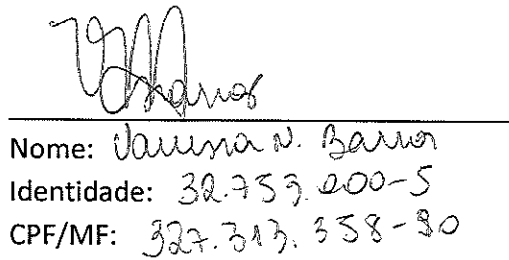 Nome: Vanessa N. Barros
Identidade: 32.753.200-5
CPF/MF: 327.313.358-90